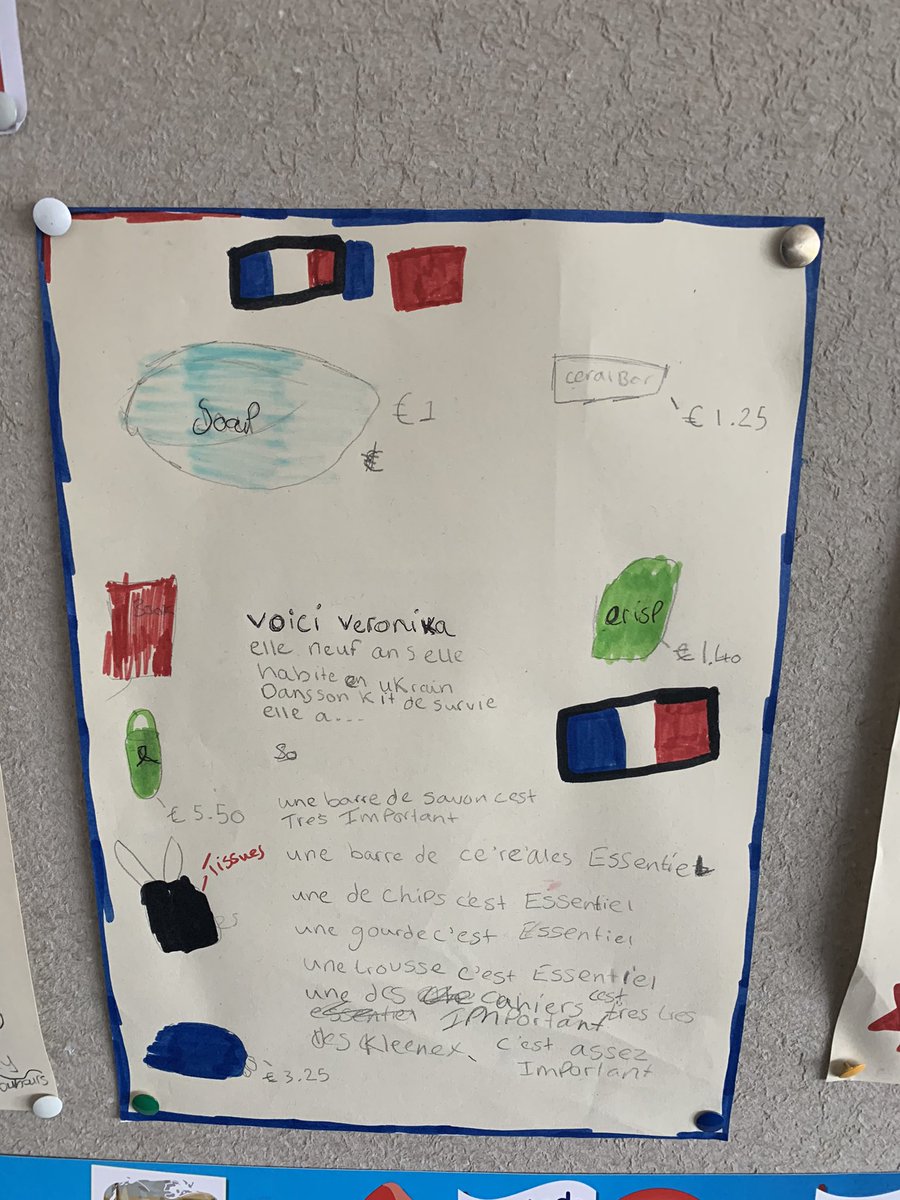 Soap
€1
€
ceralBar
€1.25
Book
crisp
€1.40
voici veronika
elle neuf ans elle
habite en ukrain
Dansson kit de survie
elle a...
So
€5.50
une barre de savon c'est
Tres Important
Tissues
une barre de ce're'ales Essentiel
une de chips c'est Essentiel
une gourde c'est Essentiel
une trousse c'est Essentiel
une des cahiers c'est
essentiel tres tres
IMPORTANT
des Kleenex, c'est assez
Important
€3.25